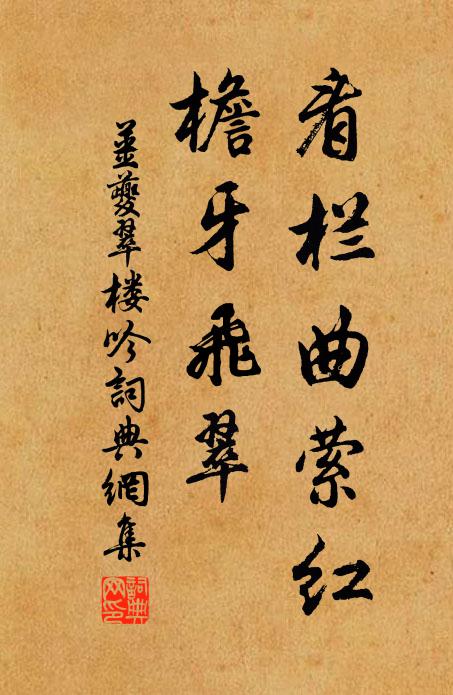 看栏曲萦红
檐牙飞翠
薑夔翠楼吟詞典網集
詞典网印